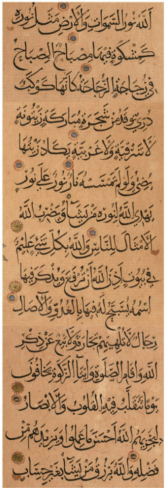 الله نور السموات والارض مثل نوره
كمشكوة فيها مصباح المصباح
في زجاجة الزجاجة كانها كوكب
دري يوقد من شجرة مباركة زيتونة
لا شرقية ولا غربية يكاد زيتها
يضيء ولو لم تمسسه نار نور على نور
يهدي الله لنوره من يشاء ويضرب الله
الامثال للناس والله بكل شيء عليم
في بيوت اذن الله ان ترفع ويذكر فيها
اسمه يسبح له فيها بالغدو والاصال
رجال لا تلهيهم تجارة ولا بيع عن ذكر
الله واقام الصلوة وايتاء الزكوة يخافون
يوما تتقلب فيه القلوب والابصار
ليجزيهم الله احسن ما عملوا ويزيدهم من
فضله والله يرزق من يشاء بغير حساب